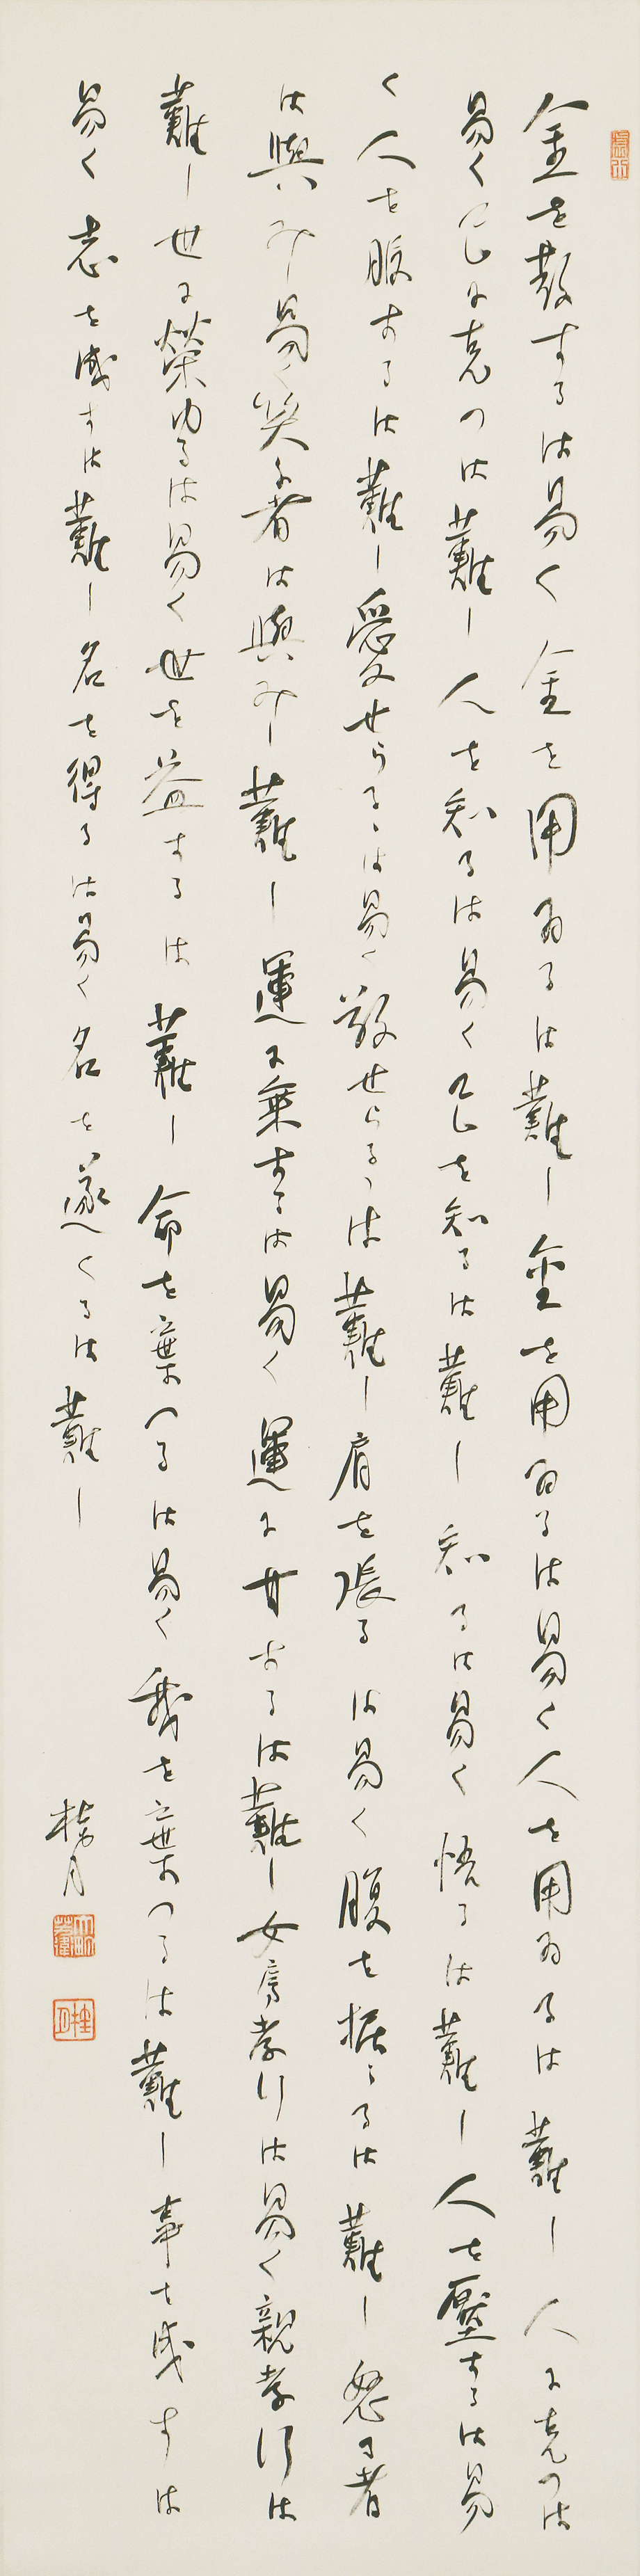 金を散するは易く金を用ゐるは難し金を用ゐるは易く人を用ゐるは難し人に克つは
易く己に克つは難し人を知るは易く己を知るは難し知るは易く悟るは難し人を壓するは易
く人を服するは難し愛せらるゝは易く敬せらるゝは難し肩を張るは易く腹を据ゑるは難し怒る者
は與み易く笑ふ者は與み難し運に乗するは易く運に甘するは難し女房孝行は易く親孝行は
難し世に榮ゆるは易く世を益するは難し命を棄つるは易く我を棄つるは難し事を成すは
易く志を成すは難し名を得るは易く名を遂くるは難し
桂月